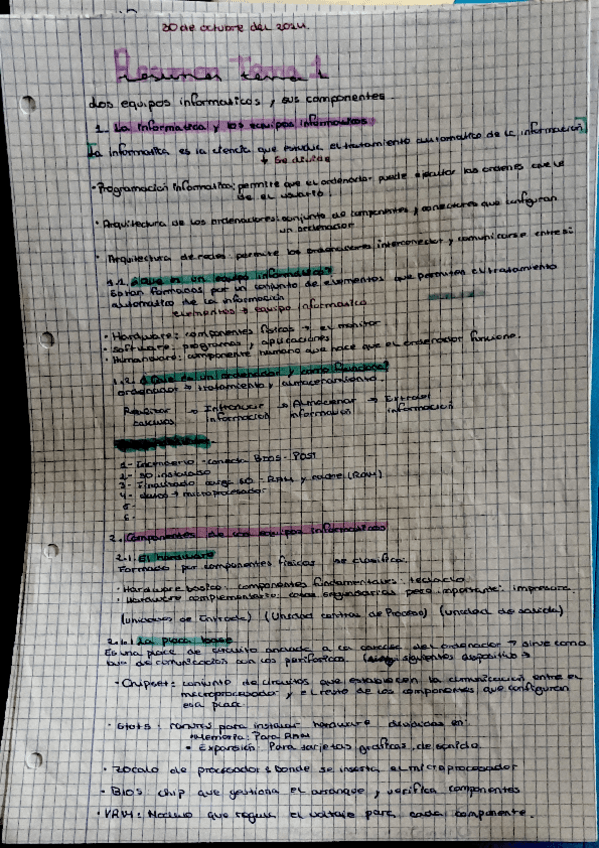 30 de octubre del 2024.
Resumen Tema 1
Los equipos informaticos y sus componentes
1. La informatica y los equipos informaticos
La informatica es la ciencia que estudia el tratamiento automatico de la información
→ Se divide
• Programación informatica: permite que el ordenador puede ejecutar las ordenes que le
da el usuario.
• Arquitectura de los ordenadores: conjunto de componentes y conectores que configuran
un ordenador
• Arquitectura de redes: permite los ordenadores interconectar y comunicarse entre si
1.1. ¿Que es un equipo informatico?
Estan formados por un conjunto de elementos que permiten el tratamiento
automatico de la información
elementos → equipo informatico
• Hardware: componentes fisicos → el monitor
• Software: programas y aplicaciones
• Humanware: componente humano que hace que el ordenador funcione.
1.2. ¿Que es un ordenador y como funciona?
ordenador → tratamiento y almacenamiento.
Realizar → Introducir → Almacenar → Extraer
calculos información información información
1- Encendido - conecta BIOS - POST
2- SO instalado
3- Finalizado carga SO - RAM y cache (ROM)
4- datos → microprocesador
5-
6-
2. Componentes de los equipos informaticos
2.1. El hardware
Formado por componentes fisicos se clasifica:
• Hardware basico: componentes fundamentales: teclado
• Hardware complementario: cosas pero importante: impresora.
(Unidades de Entrada) (Unidad central de Proceso) (unidad de salida)
2.1.1 La placa base
Es una placa de circuito anclada a la carcasa del ordenador → sirve como
bus de comunicacion con los perifericos. siguientes dispositivos →
• Chipset: conjunto de circuitos que establecen la comunicacion entre el
microprocesador y el resto de los componentes que configuran
esa placa.
• Slots: ranuras para instalar hardware divididas en:
• Memoria: Para RAM
• Expansión: Para tarjetas graficas, de sonido
• Zocalo de procesador: donde se inserta el microprocesador
• BIOS: chip que gestiona el arranque y verifica componentes
• VRM: Modulo que regula el voltaje para cada componente.